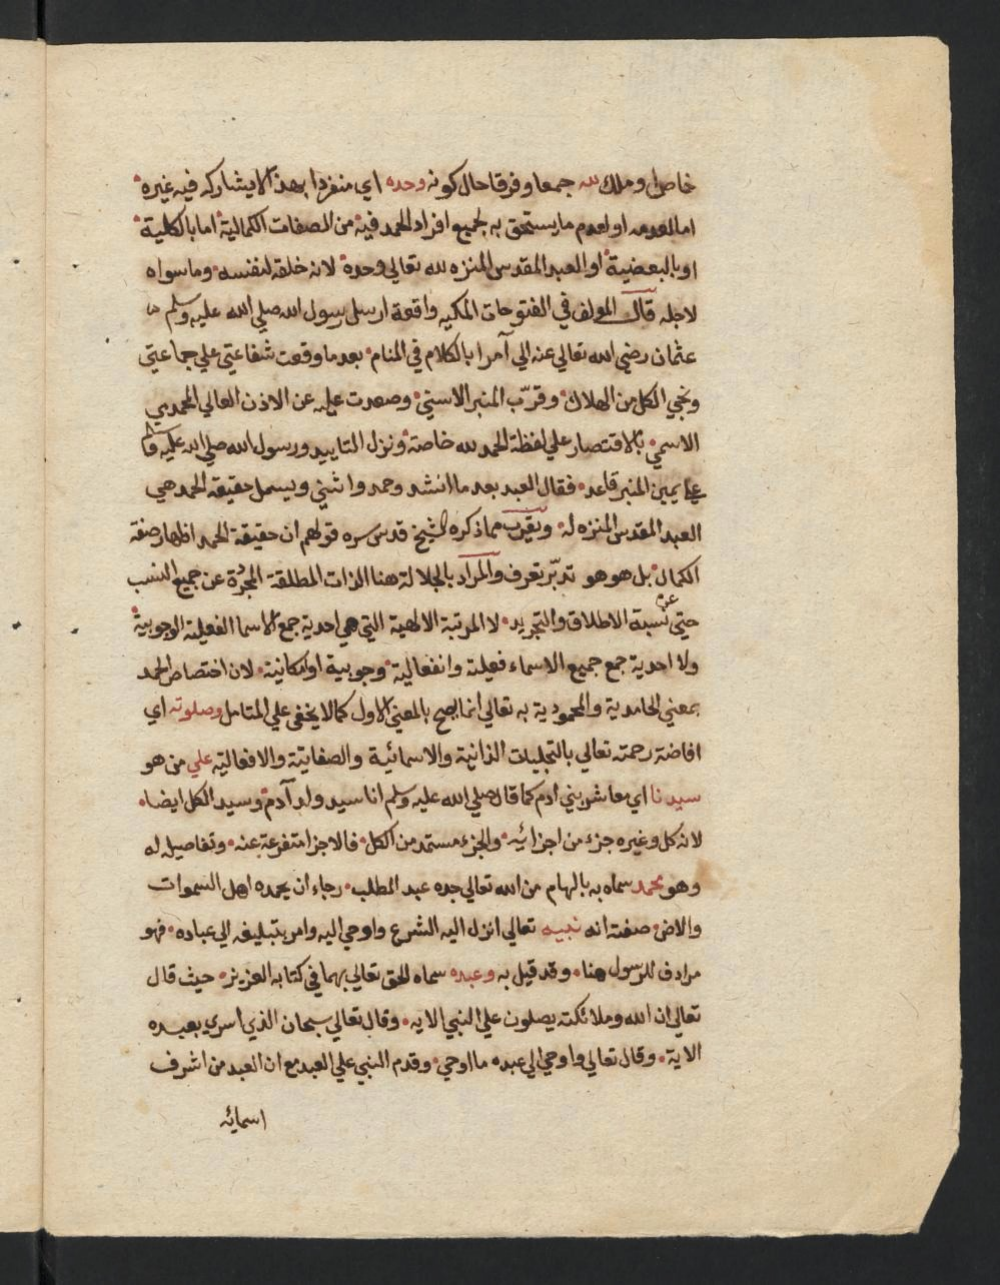 خاص او ملك لله جمعا وفرقا حال كونه وحده اي منفردا بهذا لا يشاركه فيه غيره
اما لعدمه او لعدم ما يستحق به لجميع افراد الحمد فيه من الصفات الكمالية اما بالكلية
او بالبعضية او العبد المقدس المنزه لله تعالي وحده لانه خلقه لنفسه وما سواه
لاجله قال المولف في الفتوحات المكيه واقعة ارسل رسول الله صلي الله عليه وسلم
عثمان رضي الله تعالي عنه الي آمرا بالكلام في المنام بعد ما وقعت شفاعتي علي جماعتي
ونجي الكل من الهلاك وقرّب المنبر الاسني وصعدت عليه عن الاذن العالي المحمدي
الاسمي بالاقتصار علي لفظة الحمد لله خاصة ونزل التاييد ورسول الله صلي الله عليه وسلم
علي يمين المنبر قاعد فقال العبد بعد ما انشد وحمد واثني وبسمل حقيقة الحمد هي
العبد المقدس المنزه له ويقرب مما ذكره الشيخ قدس سره قولهم ان حقيقة الحمد اظهار صفة
الكمال بل هو هو تدبّر تعرف والمراد بالجلالة هنا الذات المطلقة المجردة عن جميع النسب
حتي عن نسبة الاطلاق والتجريد لا المرتبة الالهية التي هي احدية جمع الاسما الفعلية الوجوبية
ولا احدية جمع جميع الاسماء فعلية وانفعالية وجوبية او امكانية لان اختصاص الحمد
بمعني الحامدية والمحمودية به تعالي انما يصح بالمعني الاول كما لا يخفي علي المتامل وصلوته اي
افاضة رحمته تعالي بالتجليات الذاتية والاسمائية والصفاتية والافعالية علي من هو
سيدنا اي معاشر بني ادم كما قال صلي الله عليه وسلم انا سيد ولد آدم وسيد الكل ايضا
لانه كل وغيره جزء من اجزائه والجزء مستمد من الكل فالاجزا متفرعة عنه وتفاصيل له
وهو محمد سماه به بالهام من الله تعالي جده عبد المطلب رجاء ان يحمده اهل السموات
والاض صفته انه نبيه تعالي انزل اليه الشرع واوحي اليه وامر بتبليغه الي عباده فهو
مرادف للرسول هنا وقد قيل به وعبده سماه الحق تعالي بهما في كتابه العزيز حيث قال
تعالي ان الله وملائكته يصلون علي النبي الايه وقال تعالي سبحان الذي اسري بعبده
الاية وقال تعالي واوحي الي عبده ما اوحي وقدم النبي علي العبد مع ان العبد من اشرف
اسمائه